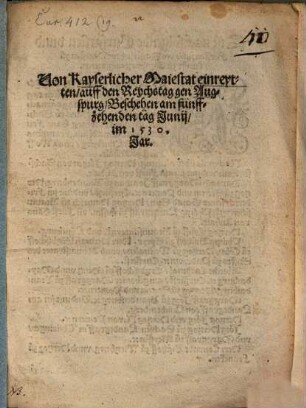 Eur. 412 (19.
40
Von Kayserlicher Maiestat einreyt-
ten/auff den Reychstag gen Aug-
spurg/Beschehen am fünff-
zehenden tag Junij/
im 1530.
Jar.